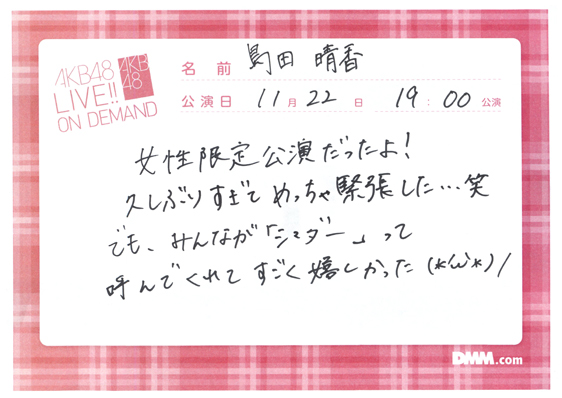 AKB48
LIVE!!
ON DEMAND
AKB
48
名前 島田 晴香
公演日 11月22日 19:00公演
女性限定公演だったよ!
久しぶりすぎてめっちゃ緊張した…笑
でも、みんなが「シーダー」って
呼んでくれてすごく嬉しかった(*'ω'*)/
DMM.com